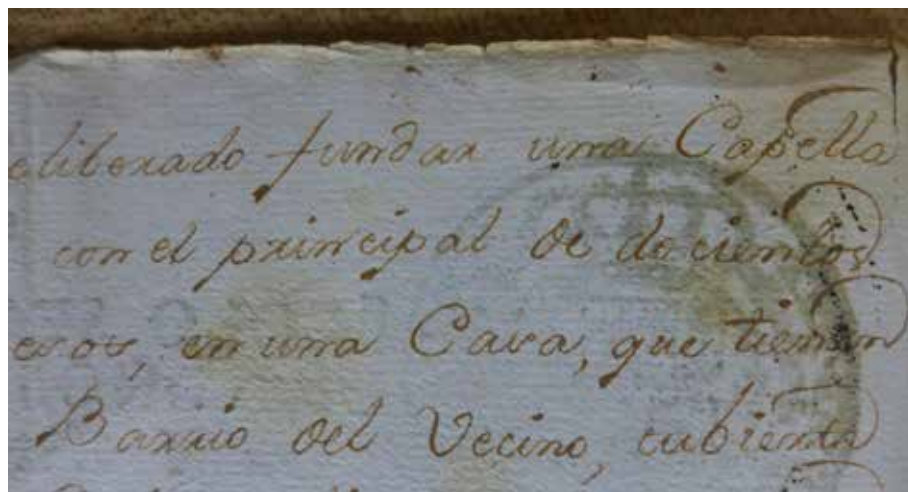 eliberado fundar una Capella
con el principal de docientos
esos, en una Casa, que tienen
Barrio del Vecino, cubierta